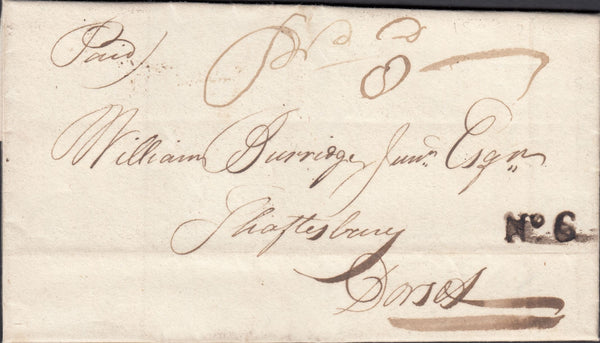 Paid
Pd 8d
William Burridge Junr. Esqr.
Shaftesbury
No 6
Dorset